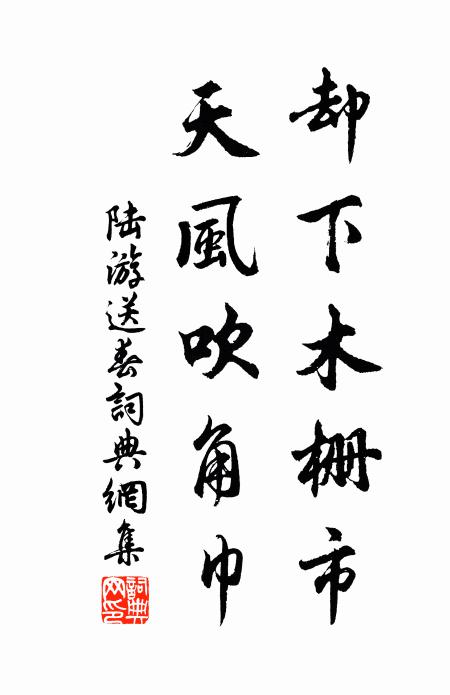 却下木栅市
天風吹角巾
陆游送春詞典網集
詞典網印